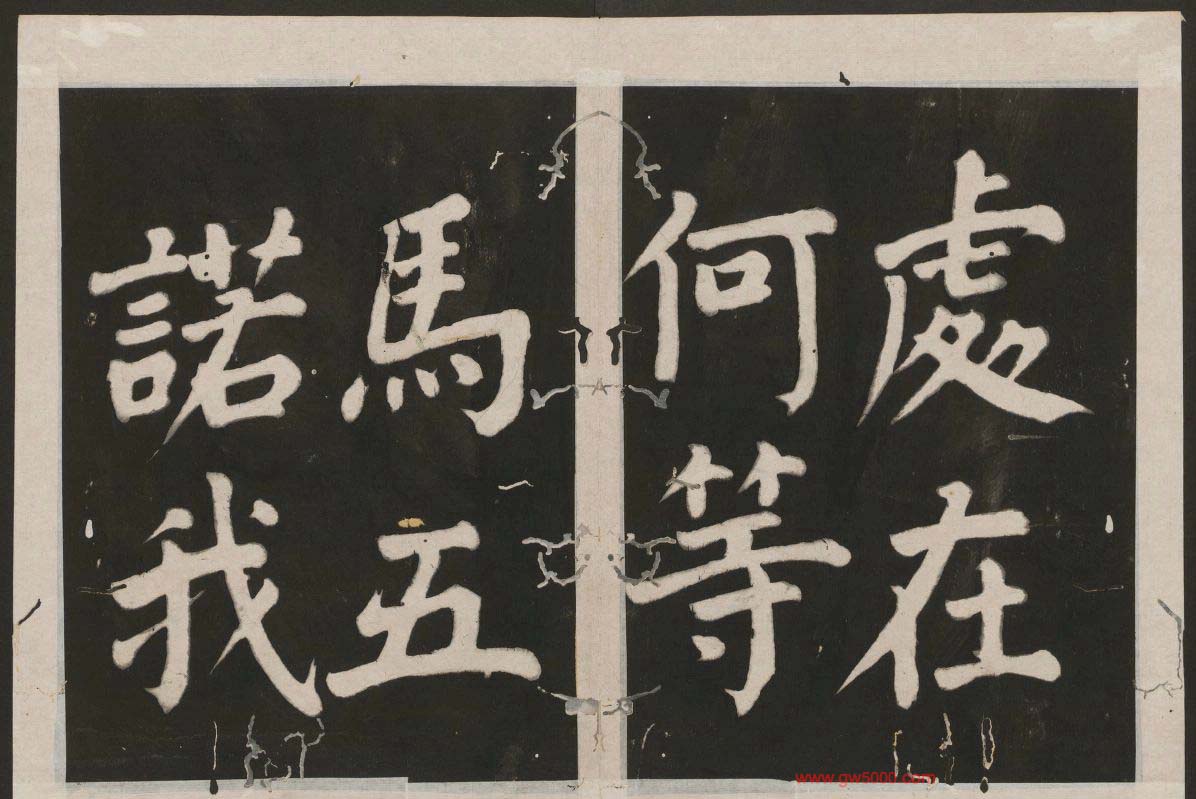 處在
何等
馬五
諾我
www.gw5000.com